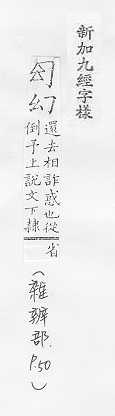 新加九經字樣
𠄔幻
還去相詐惑也從
倒予上說文下隷
省
(雜辨部 P.50)